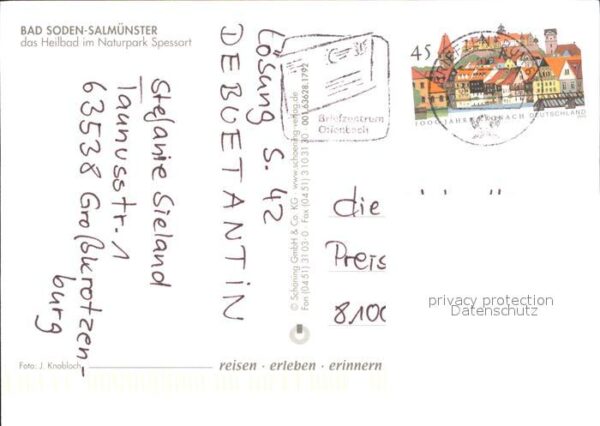 BAD SODEN-SALMÜNSTER
das Heilbad im Naturpark Spessart
Lösung S. 42
DEBUETANTIN
Stefanie Sieland
Taunusstr. 1
63538 Großkrotzen-
burg
© Schöning GmbH & Co. KG · www.schoening-verlag.de
Fon (04 51) 31 03-0 · Fax (04 51) 3 10 31 30
Briefzentrum
Offenbach
45
1000 JAHRE KRONACH DEUTSCHLAND
die
Preis
8100
privacy protection
Datenschutz
Foto: J. Knobloch
reisen · erleben · erinnern